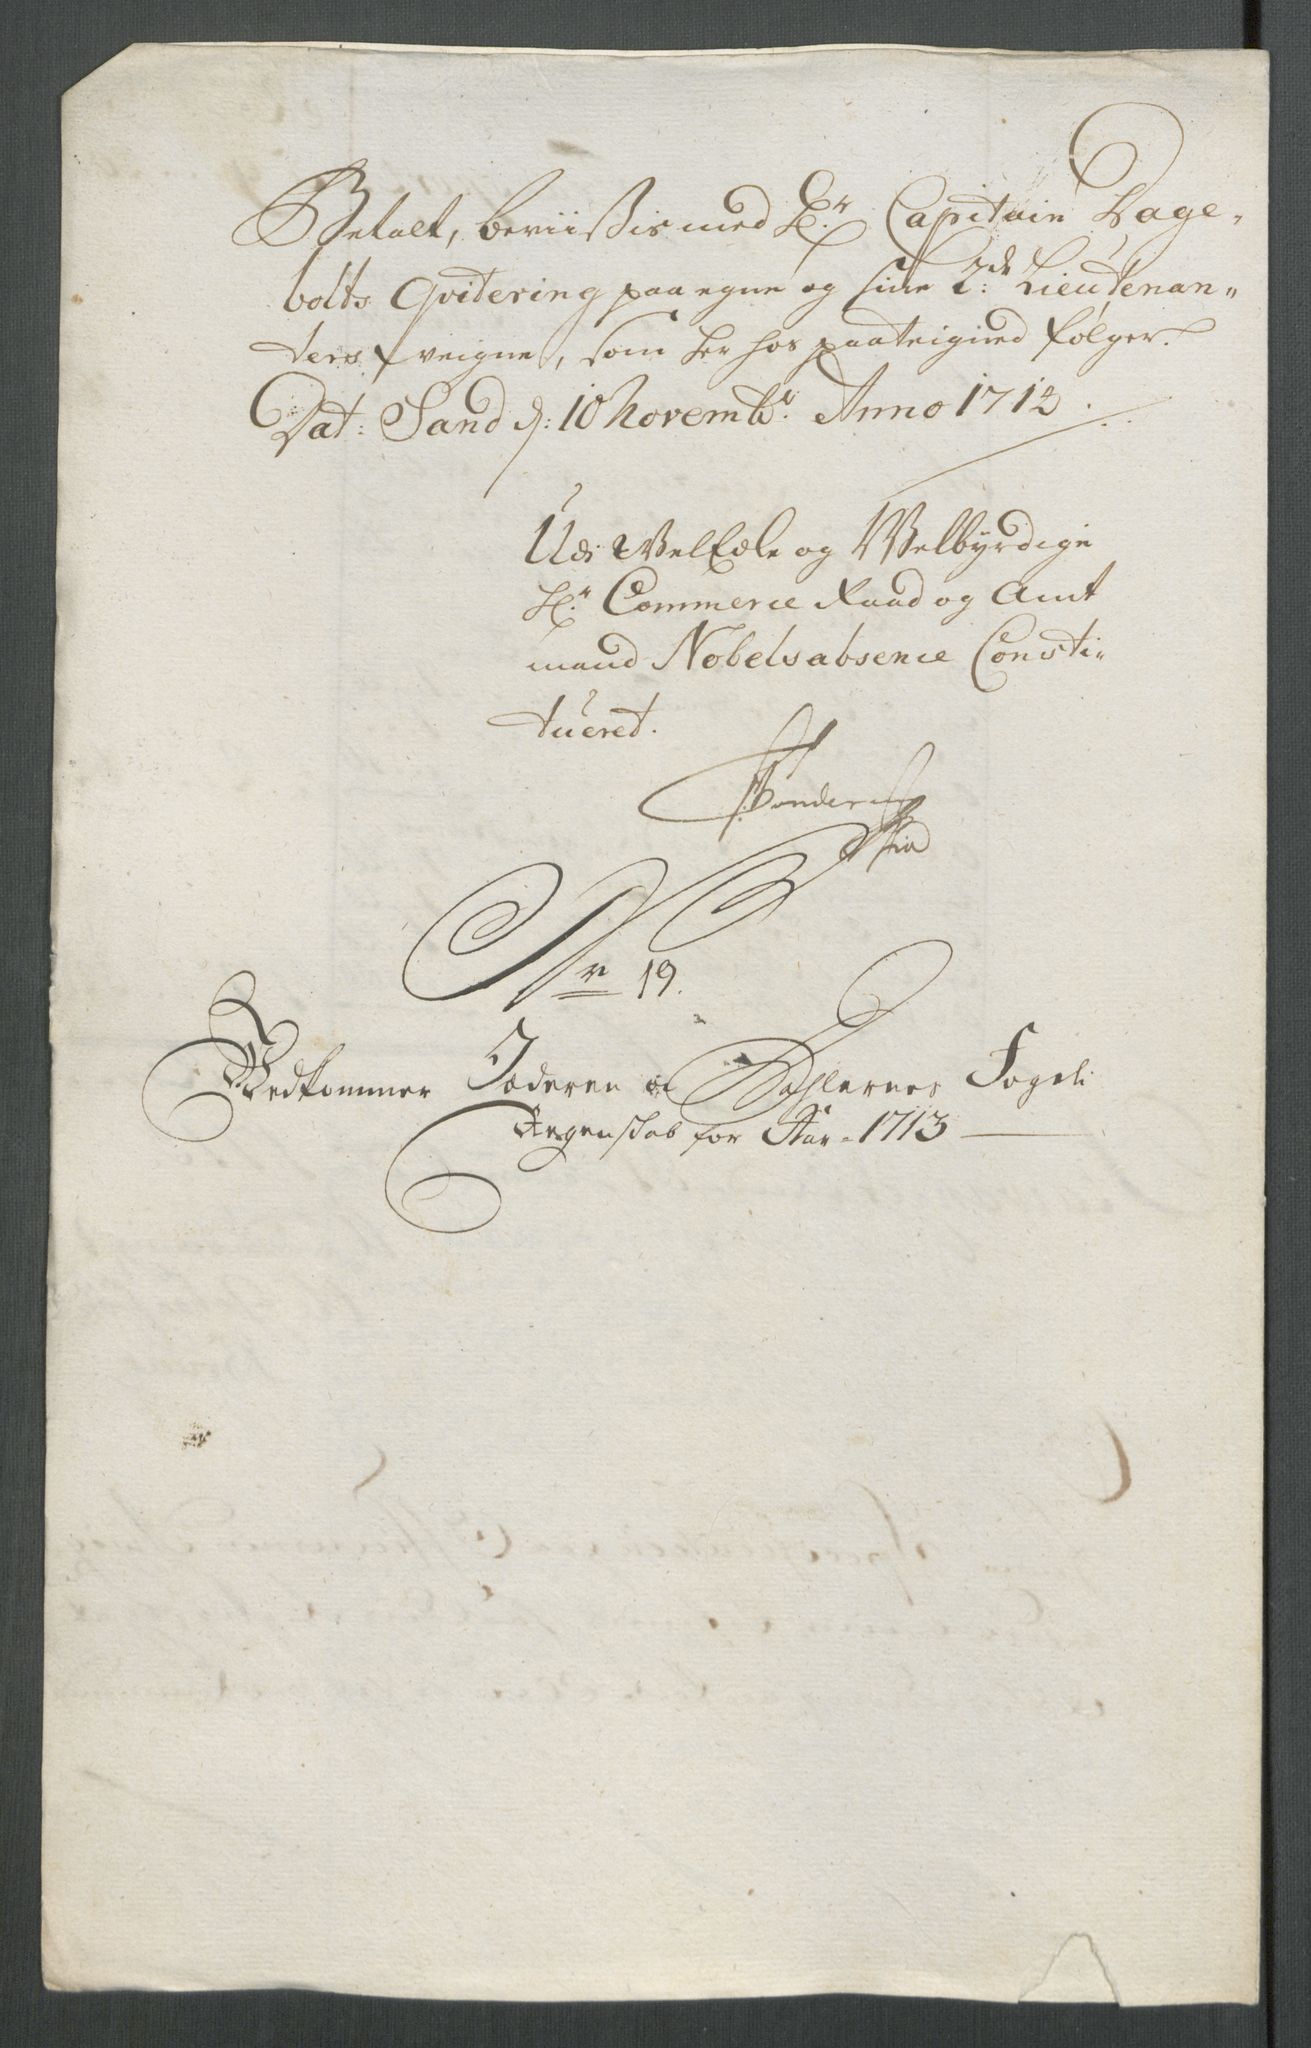 Betalt, beviisis med Hr. Capitain Dage-
bolts Qvitering paa egne og sine 2de Lieutenan-
ters veigne, som her hos paateigned følger.
Dat: Sand d: 10 Novembr. Anno 1713.
Udi Velædle og Welbyrdige
Hr. Commerce Raad og Amt
mand Nobels absence Consti-
tueret.
Nr 19.
Vedkommer Jæderen og Dahlernes Fogdi
Regenskab for Aar 1713